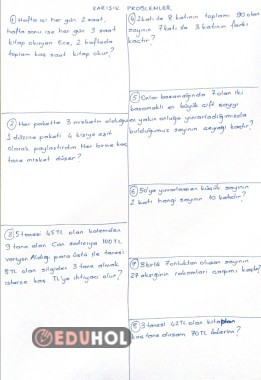 KARIŞIK PROBLEMLER
① Hafta içi her gün 2 saat,
hafta sonu ise her gün 3 saat
kitap okuyan Ece, 2 haftada
toplam kaç saat kitap okur?
② Her pakette 3 misketin olduğu
1 düzine paketi 4 kişiye eşit
olarak paylaştırdım. Her birine kaç
tane misket düşer?
③ 5 tanesi 45TL olan kalemden
9 tane alan Can satıcıya 100TL
veriyor. Aldığı para üstü ile tanesi
8TL olan silgiden 3 tane almak
isterse kaç TL'ye ihtiyacı olur?
④ 2 katı ile 8 katının toplamı 90 olan
sayının 7 katı ile 3 katının farkı
kaçtır?
⑤ Onlar basamağında 7 olan iki
basamaklı en büyük çift sayıyı
en yakın onluğa yuvarladığımızda
bulduğumuz sayının çeyreği kaçtır?
⑥ 50'ye yuvarlanan en küçük sayının
2 katı hangi sayının 10 katıdır?
⑦ 3 birlik 7 onluktan oluşan sayının
27 eksiğinin rakamları çarpımı kaçtır?
⑧ 3 tanesi 42TL olan kitaptan
kaç tane alırsam 70TL öderim?
EDUHOL